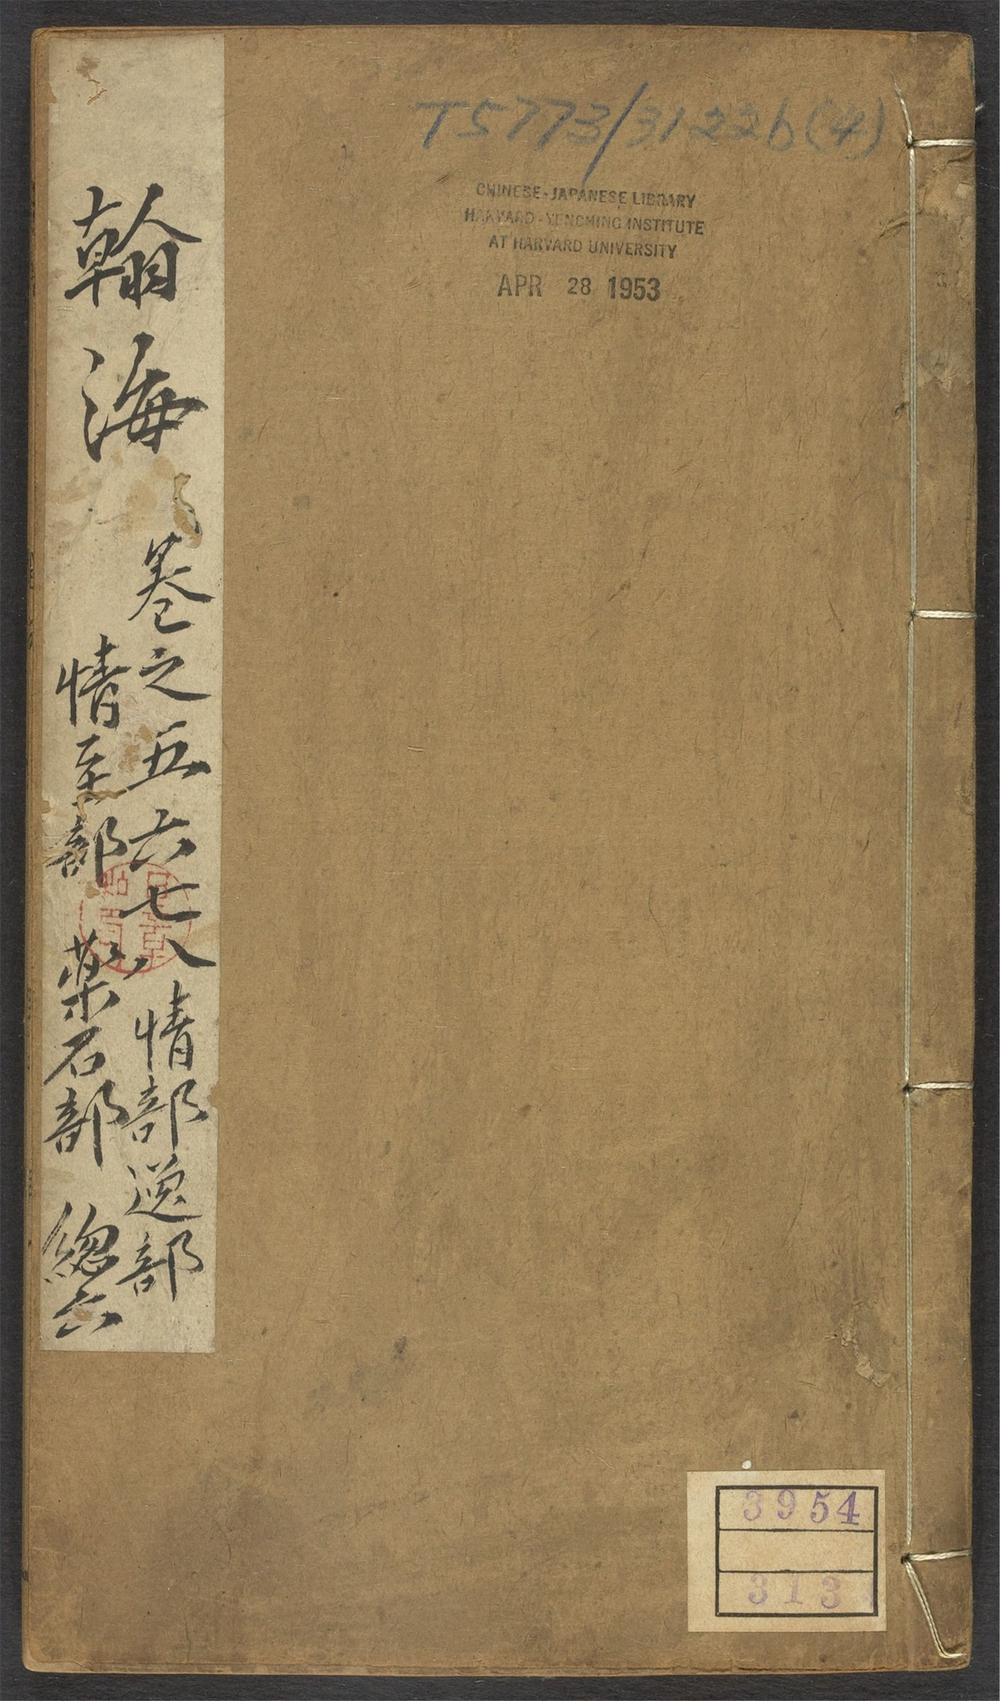 T5773/3122b(4)
CHINESE-JAPANESE LIBRARY
HARVARD-YENCHING INSTITUTE
AT HARVARD UNIVERSITY
APR 28 1953
翰海
卷之五六七八 情部逆部
情至部 藥石部 總六
3954
313